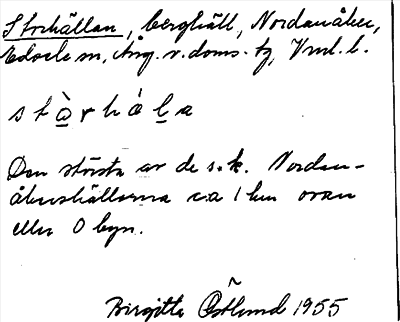 Storhällan, berghäll, Nordanåker,
Edsele sn, Ång. v. doms. tg, Vnrl. l.
stò̱rháḻa
Den största av de s.k. Nordan-
åkershällarna c:a 1 km ovan
eller O byn.
Birgitta Östlund 1955